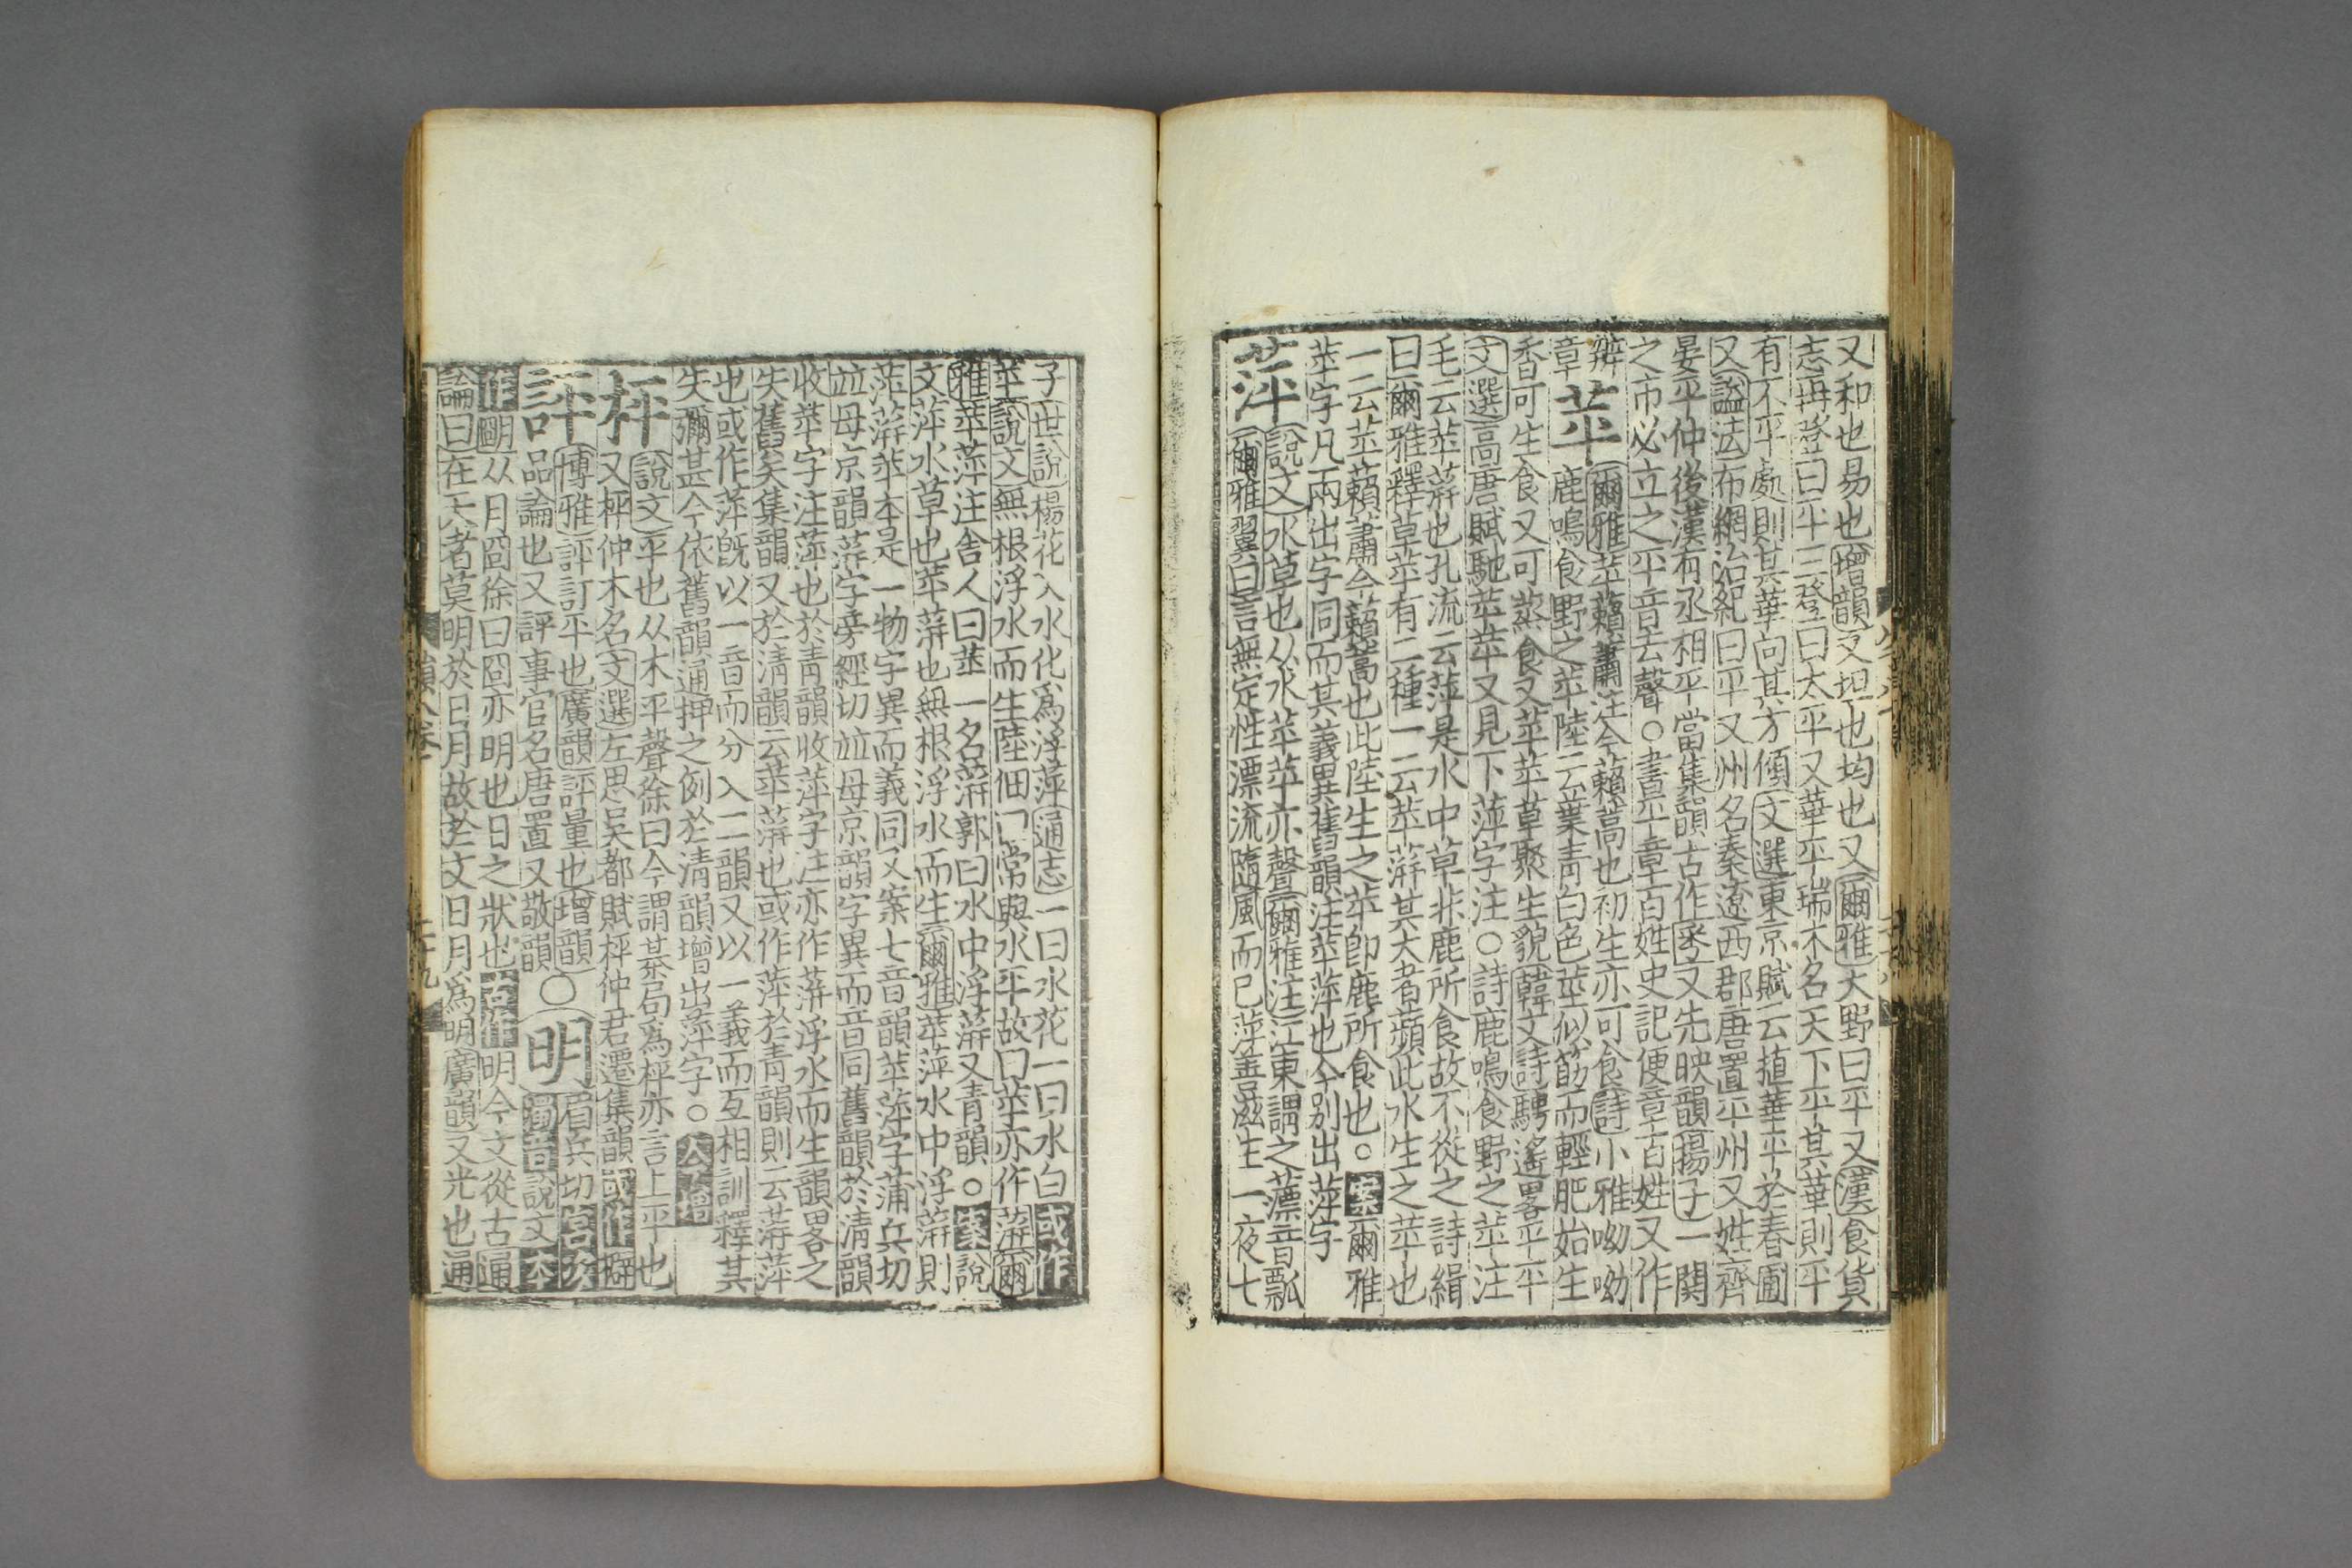 又和也易也增韻又坦也均也又爾雅大野曰平又漢食貨
志再登曰平三登曰太平又華平瑞木名天下平其華則平
有不平處則其華向其方傾文選東京賦云植華平於春圃
又謚法布網治紀曰平又州名秦遼西郡唐置平州又姓齊
晏平仲後漢有丞相平當集韻古作𠀤又先映韻揚子一鬨
之市必立之平音去聲○書平章百姓史記便章百姓又作
辨章
苹 爾雅苹藾蕭注今藾蒿也初生亦可食詩小雅呦呦
鹿鳴食野之苹陸云葉青白色莖似筯而輕肥始生
香可生食又可蒸食又苹苹草聚生貌韓文詩騁遙畧平平
文選高唐賦馳苹苹又見下萍字注○詩鹿鳴食野之苹注
毛云苹蓱也孔流云萍是水中草非鹿所食故不從之詩緝
曰爾雅釋草苹有二種一云苹蓱其大者蘋此水生之苹也
一云苹藾蕭今藾蒿也此陸生之苹卽鹿所食也○案爾雅
苹字凡兩出字同而其義異舊韻注苹萍也今別出萍字
萍 說文水草也从水苹苹亦聲爾雅注江東謂之薸音瓢
爾雅翼曰言無定性漂流隨風而已萍善滋生一夜七
子世說楊花入水化爲浮萍通志一曰水花一曰水白或作
苹說文無根浮水而生陸佃云常與水平故曰苹亦作蓱爾
雅苹萍注舍人曰苹一名蓱郭曰水中浮蓱又青韻○案說
文萍水草也苹蓱也無根浮水而生爾雅苹萍水中浮蓱則
萍蓱苹本是一物字異而義同又案七音韻苹萍字蒲兵切
竝母京韻蓱字旁經切竝母京韻字異而音同舊韻於清韻
收苹字注萍也於青韻收萍字注亦作蓱浮水而生韻畧之
失舊矣集韻又於清韻云苹蓱也或作萍於青韻則云蓱萍
也或作萍旣以一音而分入二韻又以一義而互相訓釋其
失彌甚今依舊韻通押之例於清韻增出萍字○公增
枰 說文平也从木平聲徐曰今謂棊局爲枰亦言上平也
又枰仲木名文選左思吳都賦枰仲君遷集韻或作㩺
評 博雅評訂平也廣韻評量也增韻
品論也又評事官名唐置又敬韻○
明 眉兵切音次
濁音說文本
作朙从月囧徐曰囧亦明也日之狀也古作明今文從古通
論曰在天者莫明於日月故於文日月爲明廣韻又光也通
韻八卷
二十九